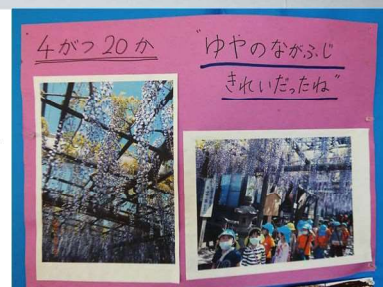 4がつ20か
"ゆやのながふじ
きれいだったね"